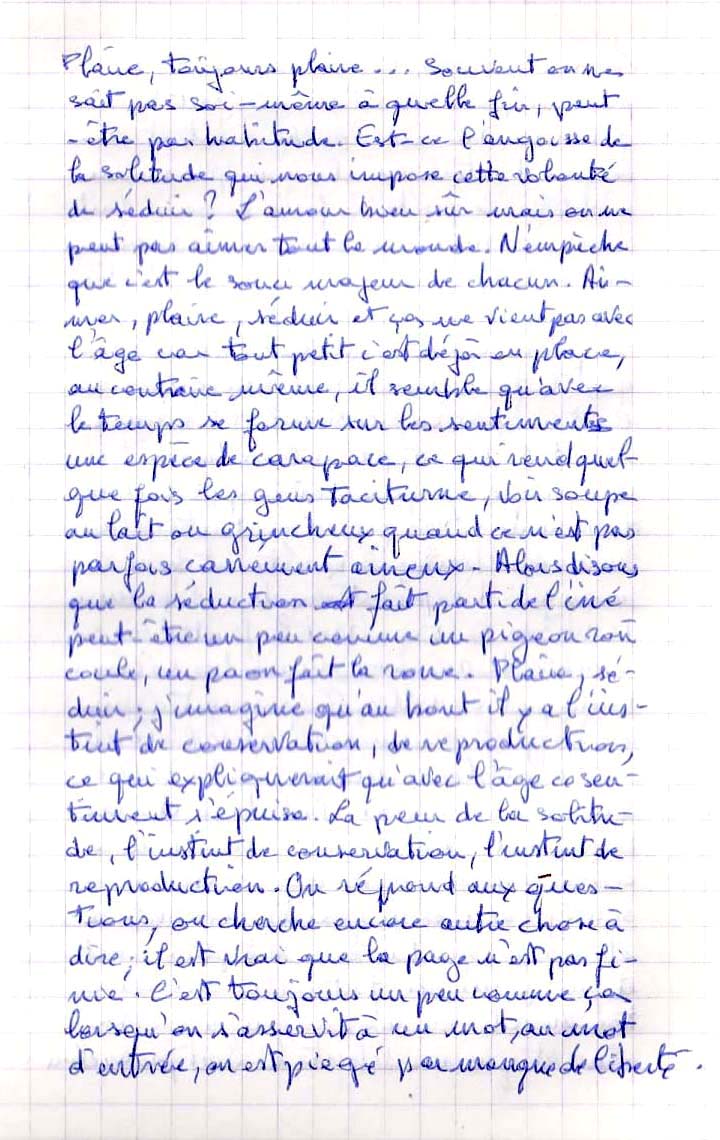 Plaire, toujours plaire... Souvent on ne
sait pas soi-même à quelle fin, peut
-être par habitude. Est-ce l'angoisse de
la solitude qui nous impose cette volonté
de séduir? L'amour bien sûr mais on ne
peut pas aimer tout le monde. N'empèche
que c'est le souci majeur de chacun. Ai-
mer, plaire, séduir et ça ne vient pas avec
l'âge car tout petit c'est déjà en place,
au contraire même, il semble qu'avec
le temps se forme sur les sentiments
une espèce de carapace, ce qui rend quel-
que fois les gens taciturne, voir soupe
au lait ou grincheux quand ce n'est pas
parfois carrément haineux. Alors disons
que la séduction fait parti de l'iné
peut-être un peu comme un pigeon rou
coule, un paon fait la roue. Plaire, sé-
duir; j'imagine qu'au bout il y a l'ins-
tint de conservation, de reproduction,
ce qui expliquerait qu'avec l'âge ce sen-
timent s'épuise. La peur de la solitu-
de, l'instint de conservation, l'instint de
reproduction. On répond aux ques-
tions, on cherche encore autre chose à
dire; il est vrai que la page n'est pas fi-
nie. C'est toujours un peu comme ça
lorsqu'on s'asservit à un mot, au mot
d'entrée, on est piegé par manque de liberté.